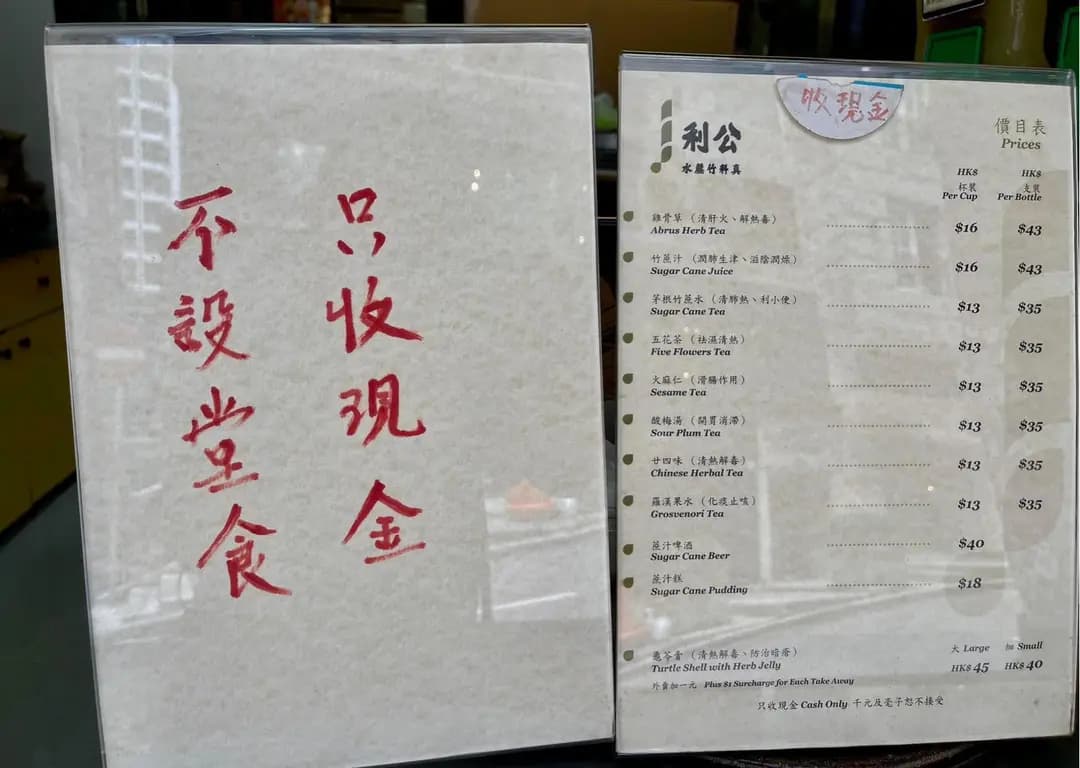 只收現金
不設堂食
收現金
利公
真料竹蔗水
價目表
Prices
HK$ HK$
杯裝 支裝
Per Cup Per Bottle
雞骨草（清肝火、解熱毒）
Abrus Herb Tea $16 $43
竹蔗汁（潤肺生津、滋陰潤燥）
Sugar Cane Juice $16 $43
茅根竹蔗水（清肺熱、利小便）
Sugar Cane Tea $13 $35
五花茶（祛濕清熱）
Five Flowers Tea $13 $35
火麻仁（滑腸作用）
Sesame Tea $13 $35
酸梅湯（開胃消滯）
Sour Plum Tea $13 $35
廿四味（清熱解毒）
Chinese Herbal Tea $13 $35
羅漢果水（化痰止咳）
Grosvenori Tea $13 $35
蔗汁啤酒
Sugar Cane Beer $40
蔗汁糕
Sugar Cane Pudding $18
龜苓膏（清熱解毒、防治暗瘡） 大 Large 細 Small
Turtle Shell with Herb Jelly HK$ 45 HK$ 40
外賣加一元 Plus $1 Surcharge for Each Take Away
只收現金 Cash Only 千元及毫子恕不接受